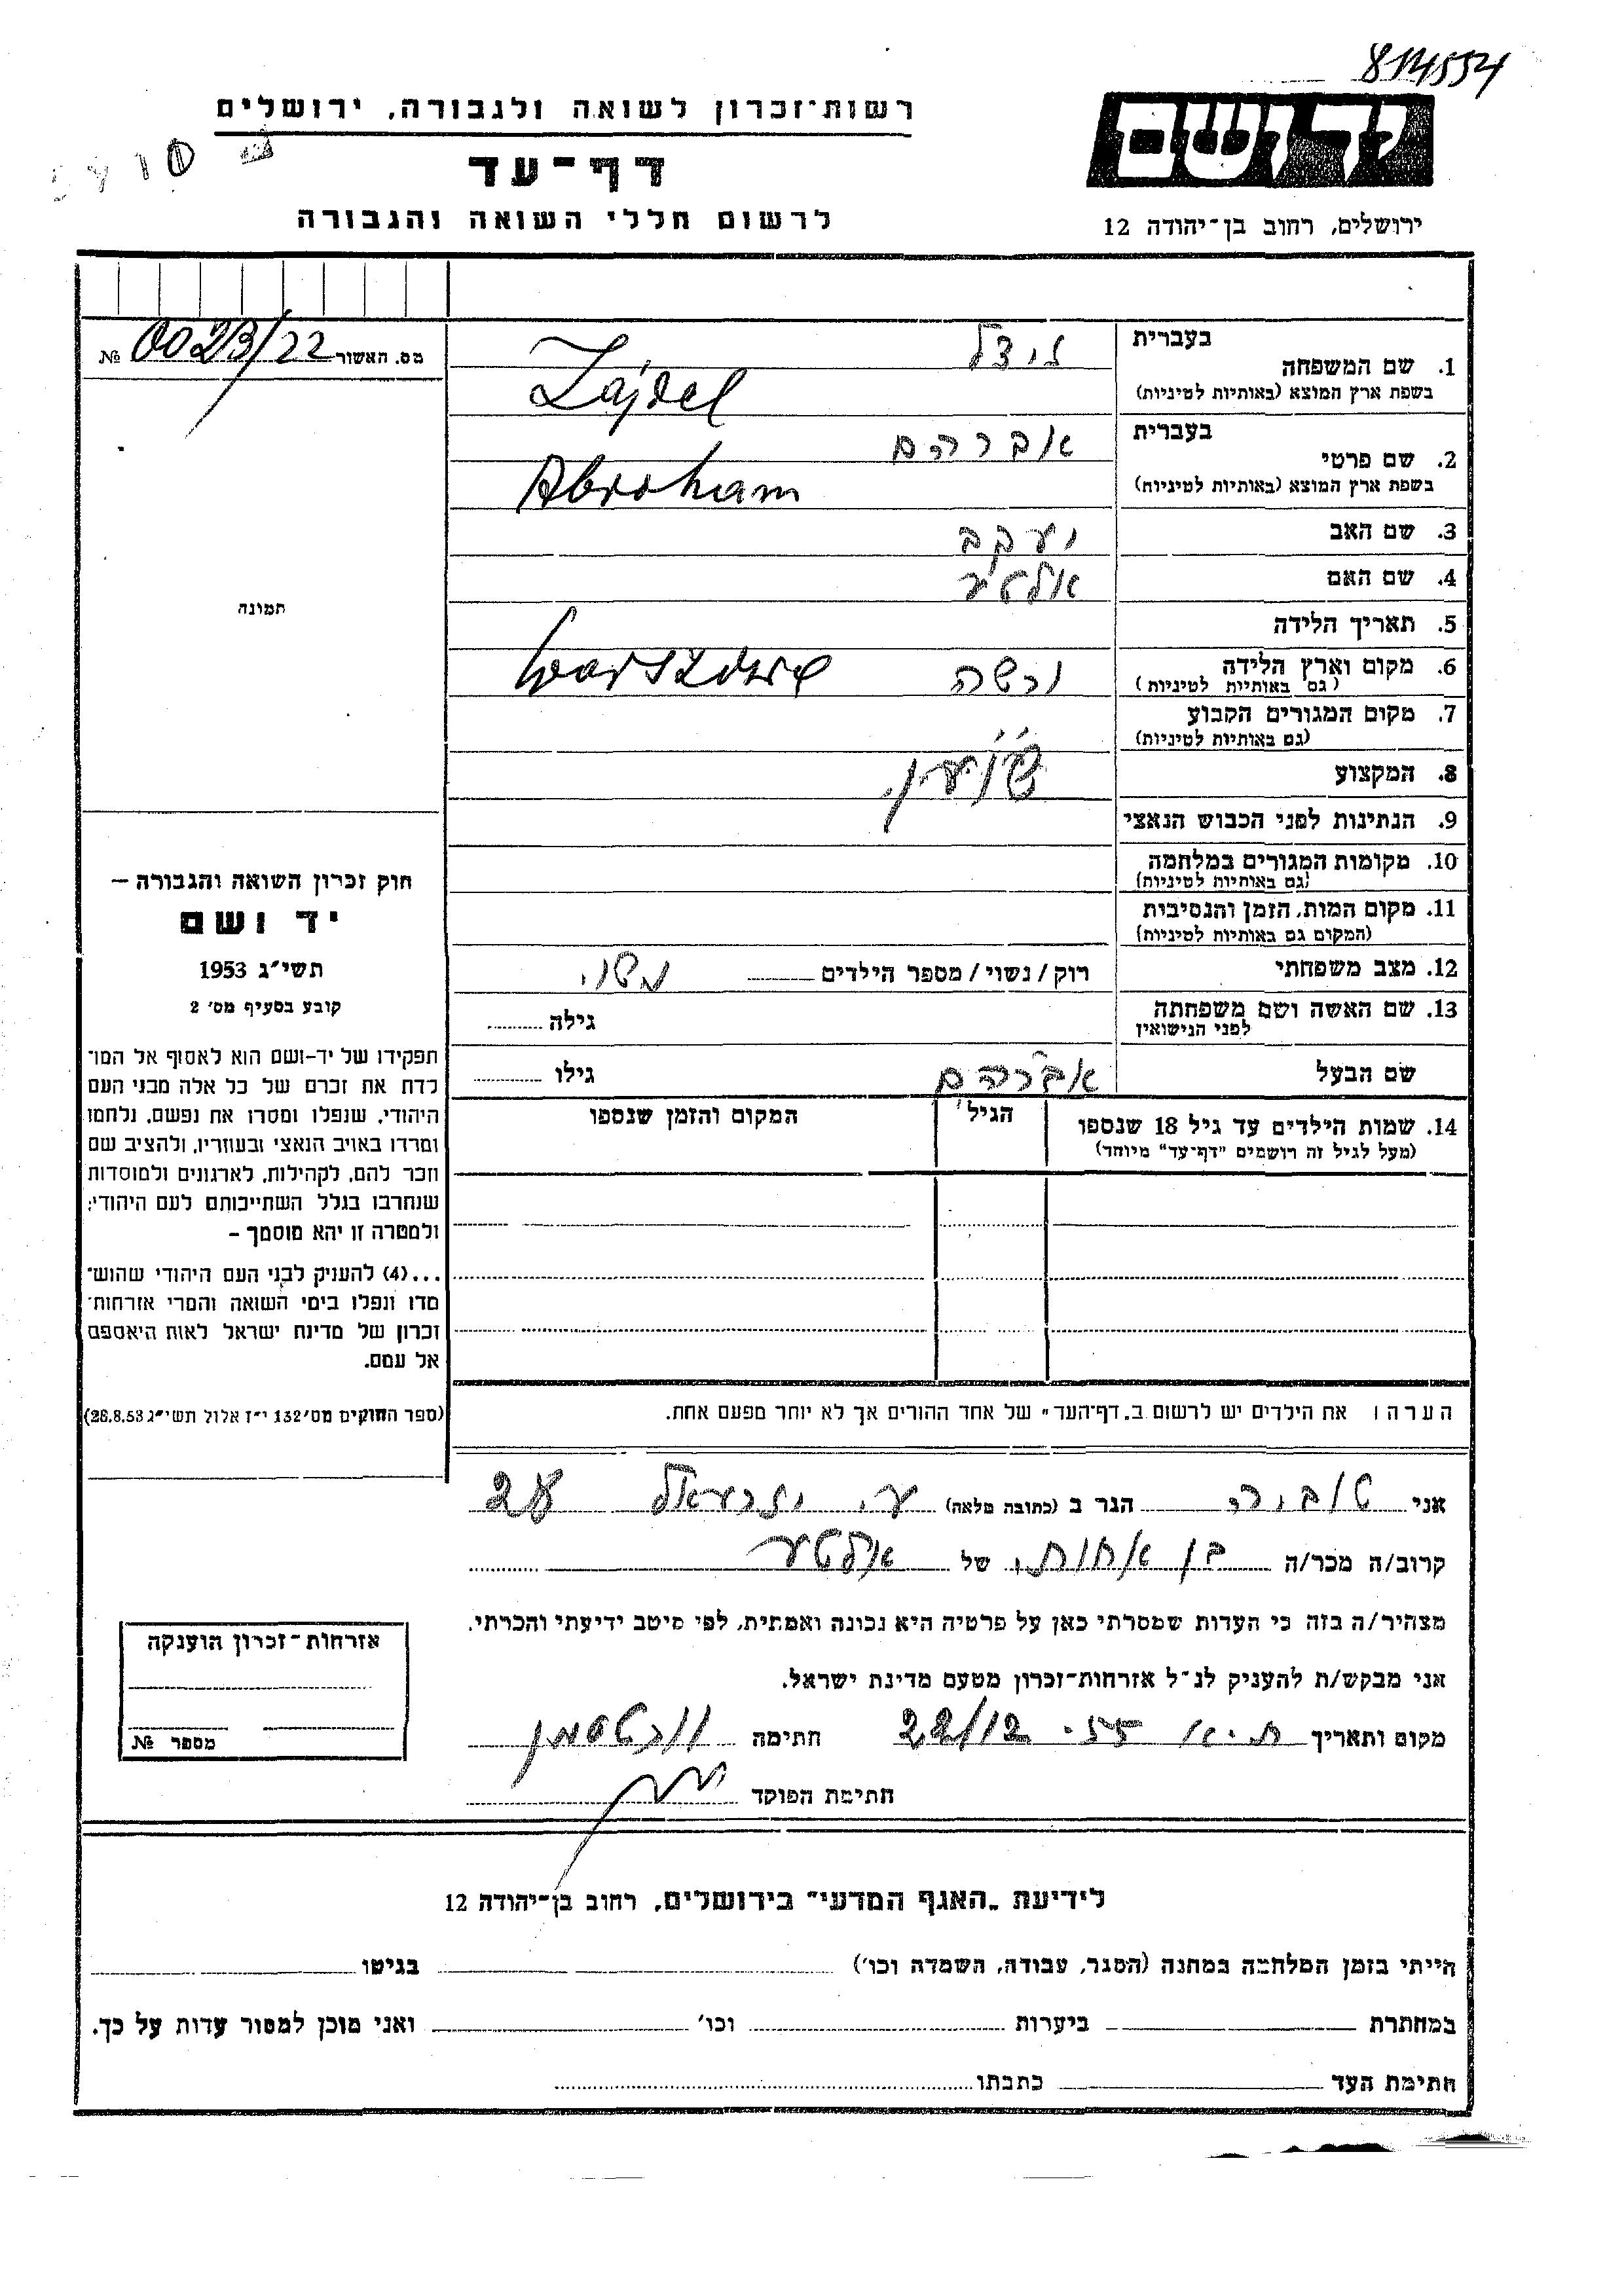 814554
יד ושם
ירושלים, רחוב בן־יהודה 12
רשות־זכרון לשואה ולגבורה, ירושלים
דף־עד
לרשום חללי השואה והגבורה
מס. האשור № 0023/22
1. שם המשפחה
בעברית
בשפת ארץ המוצא (באותיות לטיניות)
Zajdel
2. שם פרטי
בעברית אברהם
בשפת ארץ המוצא (באותיות לטיניות) Abraham
3. שם האב יעקב
4. שם האם אלטע
5. תאריך הלידה
6. מקום וארץ הלידה ורשה Warszawa
(גם באותיות לטיניות)
7. מקום המגורים הקבוע
(גם באותיות לטיניות)
8. המקצוע
9. הנתינות לפני הכבוש הנאצי
10. מקומות המגורים במלחמה
(גם באותיות לטיניות)
11. מקום המות, הזמן והנסיבות
(המקום גם באותיות לטיניות)
12. מצב משפחתי רוק/נשוי/מספר הילדים
13. שם האשה ושם משפחתה גילה
לפני הנישואין
שם הבעל אברהם גילו
14. שמות הילדים עד גיל 18 שנספו הגיל המקום והזמן שנספו
(מעל לגיל זה רושמים "דף־עד" מיוחד)
תמונה
חוק זכרון השואה והגבורה –
יד ושם
תשי"ג 1953
קובע בסעיף מס' 2
תפקידו של יד־ושם הוא לאסוף אל המו־
לדת את זכרם של כל אלה מבני העם
היהודי, שנפלו ומסרו את נפשם, נלחמו
ומרדו באויב הנאצי ובעוזריו, ולהציב שם
וזכר להם, לקהילות, לארגונים ולמוסדות
שנחרבו בגלל השתייכותם לעם היהודי;
ולמטרה זו יהא מוסמך –
...(4) להעניק לבני העם היהודי שהוש־
מדו ונפלו בימי השואה והמרי אזרחות־
זכרון של מדינת ישראל לאות היאספם
אל עמם.
(ספר החוקים מס' 132 י"ז אלול תשי"ג 28.8.53)
הערה: את הילדים יש לרשום ב„דף־העד" של אחד ההורים אך לא יוחר מפעם אחת.
אני טוביה הגר ב (כתובה מלאה) ע. יזרעאל
קרוב/ה מכר/ה בן אחותו של אלטע
מצהיר/ה בזה כי העדות שמסרתי כאן על פרטיה היא נכונה ואמתית, לפי מיטב ידיעתי והכרתי.
אני מבקש/ת להעניק לנ"ל אזרחות־זכרון מטעם מדינת ישראל.
מקום ותאריך ת.א 22/12.55 חתימה
חתימת הפוקד
אזרחות־זכרון הוענקה
מספר №
לידיעת „האגף המדעי" בירושלים, רחוב בן־יהודה 12
הייתי בזמן המלחמה במחנה (הסגר, עבודה, השמדה וכו') בגיטו
במחתרת ביערות וכו' ואני מוכן למסור עדות על כך.
חתימת העד כתבתו